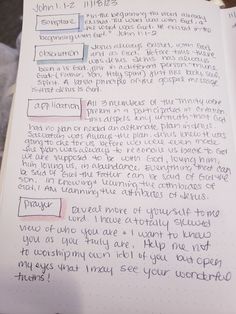 John 1:1-2 11/18/23
Scripture "In the beginning the word already
existed. The word was with God &
the word was God. He existed in the
beginning with God." John 1:1-2
Observation Jesus always existed with God
and as God. Before time there
was Jesus. Jesus has always
been a is God, just a different person
God = (Father, Son, Holy Spirit) just like body, soul,
Spirit. A basic principle of the gospel message
is that Jesus is God.
Application All 3 members of the Trinity were
present & participated in creation.
this dispels any untruth that God
had no plan or needed an alternate plan.
was always the plan. Jesus knew he was
going to the cross before we were even made.
the plan was always to reconcile us back to God
we are supposed to be with God, loving him,
him loving us, in abundance. Everything that can
be said of God the Father can be said of God the
son. In knowing & learning the attributes of
God, I am learning the attributes of Jesus.
Prayer Reveal more of yourself to me
Lord. I have a totally skewed
view of who you are & I want to know
you as you truly are. Help me not
to worship my own idol of you but open
my eyes that I may see your wonderful
truths!